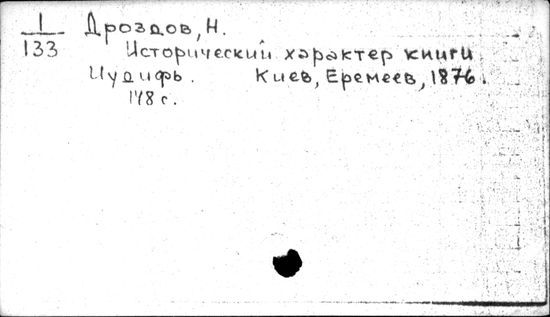 1/133 Дроздов, Н.
Исторический характер книги
Иудифь. Киев, Еремеев, 1876.
148 с.